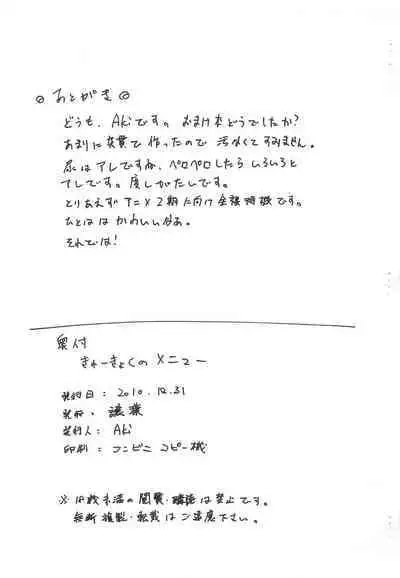 ◎ あとがき ◎
どうも、Akiです。おまけ本どうでしたか?
あまりに突貫で作ったので汚なくてすみません。
尿はアレですが、ペロペロしたらいろいろと
アレです。度しがたしです。
とりあえずアニメ2期に向け全裸待機です。
ひとははかわいいなぁ。
それでは!
奥付
きゅーきょくのメニュー
発行日:2010.12.31
発行:譲葉
発行人:Aki
印刷:コンビニコピー機
※18歳未満の閲覧・購読は禁止です。
無断複製・転載はご遠慮下さい。